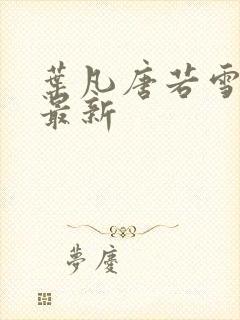 葉凡唐若雪
最新
夢廈